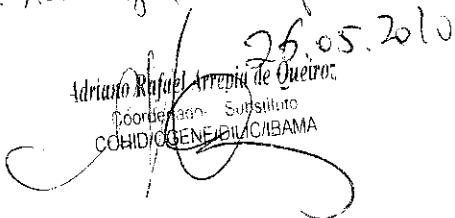 26.05.2010
Adriano Rafael Arrepia de Queiroz
Coordenador Substituto
COHID/CGENE/DILIC/IBAMA